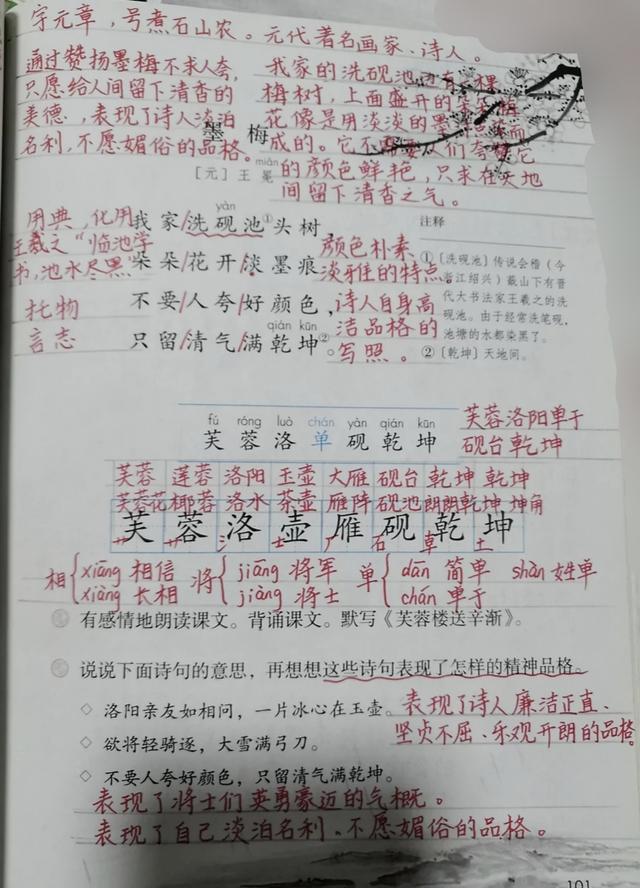 字元章，号煮石山农。元代著名画家、诗人。
通过赞扬墨梅不求人夸，
只愿给人间留下清香的
美德，表现了诗人淡泊
名利，不愿媚俗的品格。
我家的洗砚池边有一棵
梅树，上面盛开的朵朵梅
花像是用淡淡的墨
成的。它不需要人们夸它
的颜色鲜艳，只求在天地
间留下清香之气。
墨梅
mián
[元]王冕
用典，化用
王羲之“临池学
书，池水尽黑”
托物
言志
yàn
我家/洗砚池①头树，
朵朵/花开/淡墨痕。
不要/人夸/好颜色，
qián kūn
只留/清气/满乾坤②。
颜色朴素
淡雅的特点。
诗人自身高
洁品格的
写照。
注释
①〔洗砚池〕传说会稽（今
浙江绍兴）蕺山下有晋
代大书法家王羲之的洗
砚池。由于经常洗笔砚，
池塘的水都染黑了。
②〔乾坤〕天地间。
fú róng luò chán yàn qián kūn
芙蓉洛单砚乾坤
芙蓉洛阳单于
砚台乾坤
芙蓉 莲蓉 洛阳 玉壶 大雁 砚台 乾坤 乾坤
芙蓉花 椰蓉 洛水 茶壶 雁阵 砚池 朗朗乾坤 坤角
芙蓉洛壶雁砚乾坤
艹 艹 氵 士 厂 石 土
相{xiāng 相信 将{jiāng 将军 单{dān 简单 shàn 姓单
xiàng 长相 jiàng 将士 chán 单于
有感情地朗读课文。背诵课文。默写《芙蓉楼送辛渐》。
说说下面诗句的意思，再想想这些诗句表现了怎样的精神品格。
◇ 洛阳亲友如相问，一片冰心在玉壶。
表现了诗人廉洁正直、
坚贞不屈、乐观开朗的品格。
◇ 欲将轻骑逐，大雪满弓刀。
◇ 不要人夸好颜色，只留清气满乾坤。
表现了将士们英勇豪迈的气概。
表现了自己淡泊名利、不愿媚俗的品格。
101